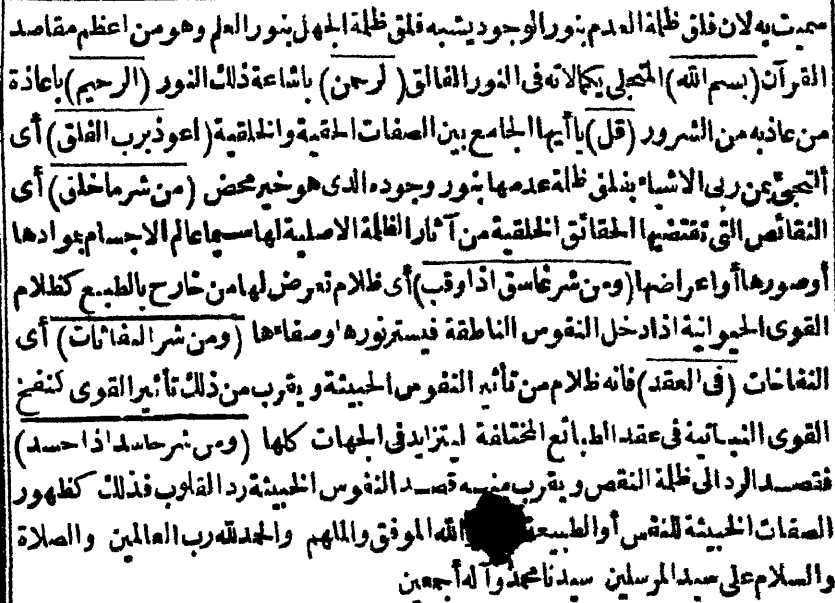 سميت به لان فلق ظلمة العدم بنور الوجود يشبه فلق ظلمة الجهل بنور العلم وهو من اعظم مقاصد
القرآن (بسم الله) المتجلى بكمالاته فى النور الفالق (لرحمن) باشاعة ذلك النور (الرحيم) باعاذة
من عاذ به من الشرور (قل) يا أيها الجامع بين الصفات الحقية والخلقية (اعوذ برب الفلق) أى
ألتجئ بمن ربى الاشياء بفلق ظلمة عدمها بنور وجوده الذى هو خير محض (من شر ما خلق) أى
النقائص التى تقتضيها الحقائق الخلقية من آثار الظلمة الاصلية لها سيما عالم الاجسام بموادها
أو صورها أو اعراضها (ومن شر غاسق اذا وقب) أى ظلام تعرض لها من خارج بالطبع كظلام
القوى الحيوانية اذا دخل النفوس الناطقة فيستر نورها وصفاءها (ومن شر النفاثات) أى
النفاخات (فى العقد) فانه ظلام من تأثير النفوس الخبيثة ويقرب من ذلك تأثير القوى كنفخ
القوى النباتية فى عقد الطبائع المختلفة ليتزايد فى الجهات كلها (ومن شر حاسد اذا حسد)
فقصد الرد الى ظلمة النقص ويقرب منه قصد النفوس الخبيثة رد القلوب فذلك كظهور
الصفات الخبيثة للنفس أو الطبيعة والله الموفق والملهم والحمد لله رب العالمين والصلاة
والسلام على سيد المرسلين سيدنا محمد وآله أجمعين